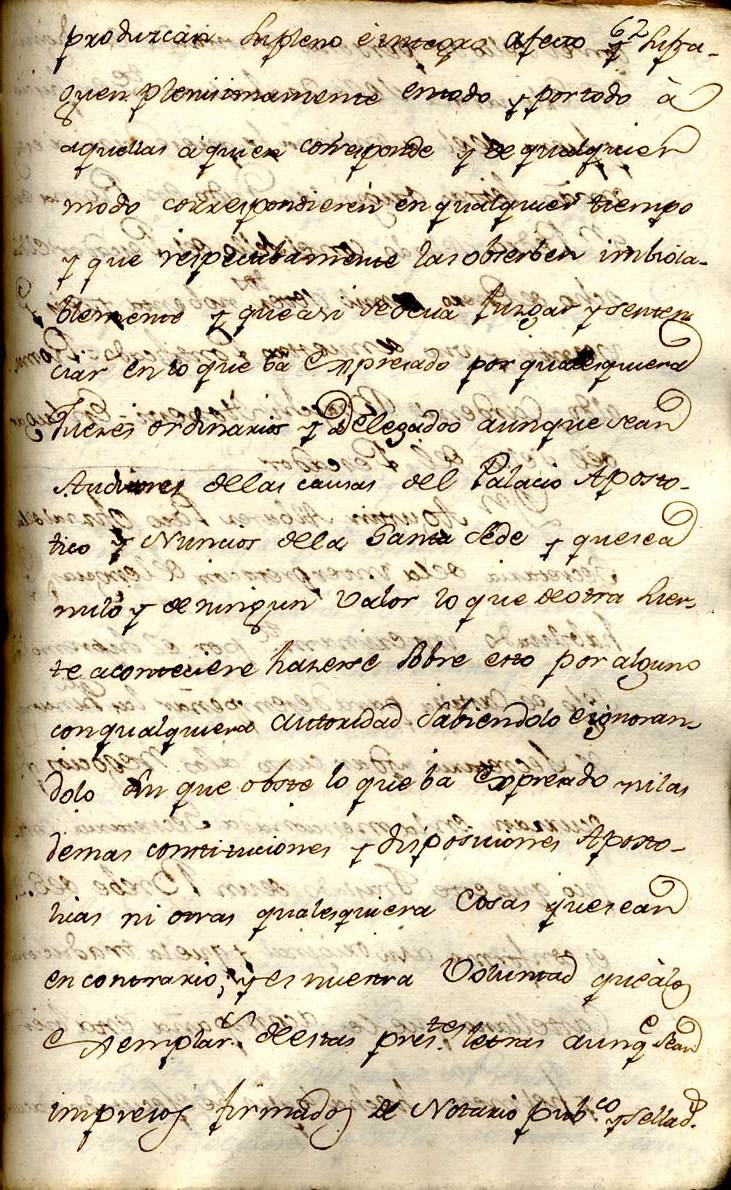 produzcan su pleno é integro efecto y sufra-
62
guen plenissimamente entodo y portodo à
aquellas a quien corresponde y de qualquier
modo correspondieren en qualquier tiempo
y que respectibamente las obserben imbiola-
blemente y que asi se deva Jusgar y senten
ciar en lo que ba Expresado por qualesquiera
Jueses ordinarios y Delegados aunque sean
Auditores dellas causas del Palacio Aposto-
lico y Nuncios della Santa Sede y que sea
nulo y de ningun Valor lo que de otra suer-
te aconteciere haserse sobre esto por alguno
con qualquiera autoridad sabiendolo e ignoran-
dolo sin que obste lo que ba Expresado ni las
demas constituciones y disposiciones Aposto-
licas ni otras qualesquiera cosas que sean
en contrario; y es nuestra Voluntad que à los
Exemplar.s destas pres.tes letras aunq.e sean
impresos firmados de Notario pub.co y sellad.s